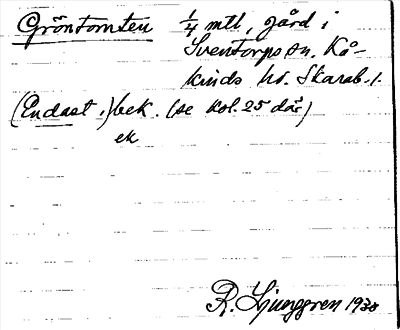 Gröntomten 1/4 mtl, gård i
Sventorps sn. Kå-
kinds hd. Skarab. l.
(Endast i) bek. (se kol. 25 där)
ek
R. Ljunggren 1938